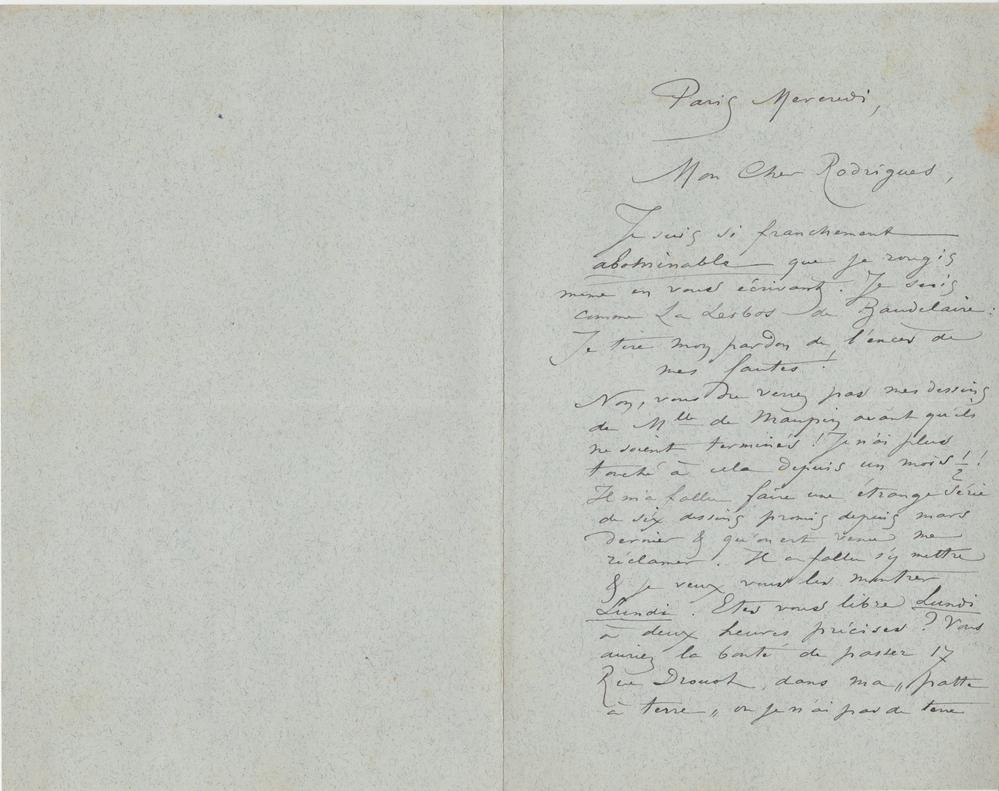 Paris Mercredi,
Mon Cher Rodrigues,
Je suis si franchement
abominable que je rougis
même en vous écrivant. Je suis
comme La Lesbos de Baudelaire:
Je tire mon pardon de l'encre de
mes fautes!
Non, vous ne verrez pas mes dessins
de Mlle de Maupin avant qu'ils
ne soient terminés! Je n'ai plus
touché à cela depuis un mois 1/2!
Il m'a fallu faire une étrange série
de six dessins promis depuis mars
dernier & qu'on est venu me
réclamer. Il a fallu s'y mettre
& je veux vous les montrer
Lundi. Etes vous libre Lundi
à deux heures précises? Vous
auriez la bonté de passer 17
Rue Drouot, dans ma „patte
à terre„ où je n'ai pas de terre